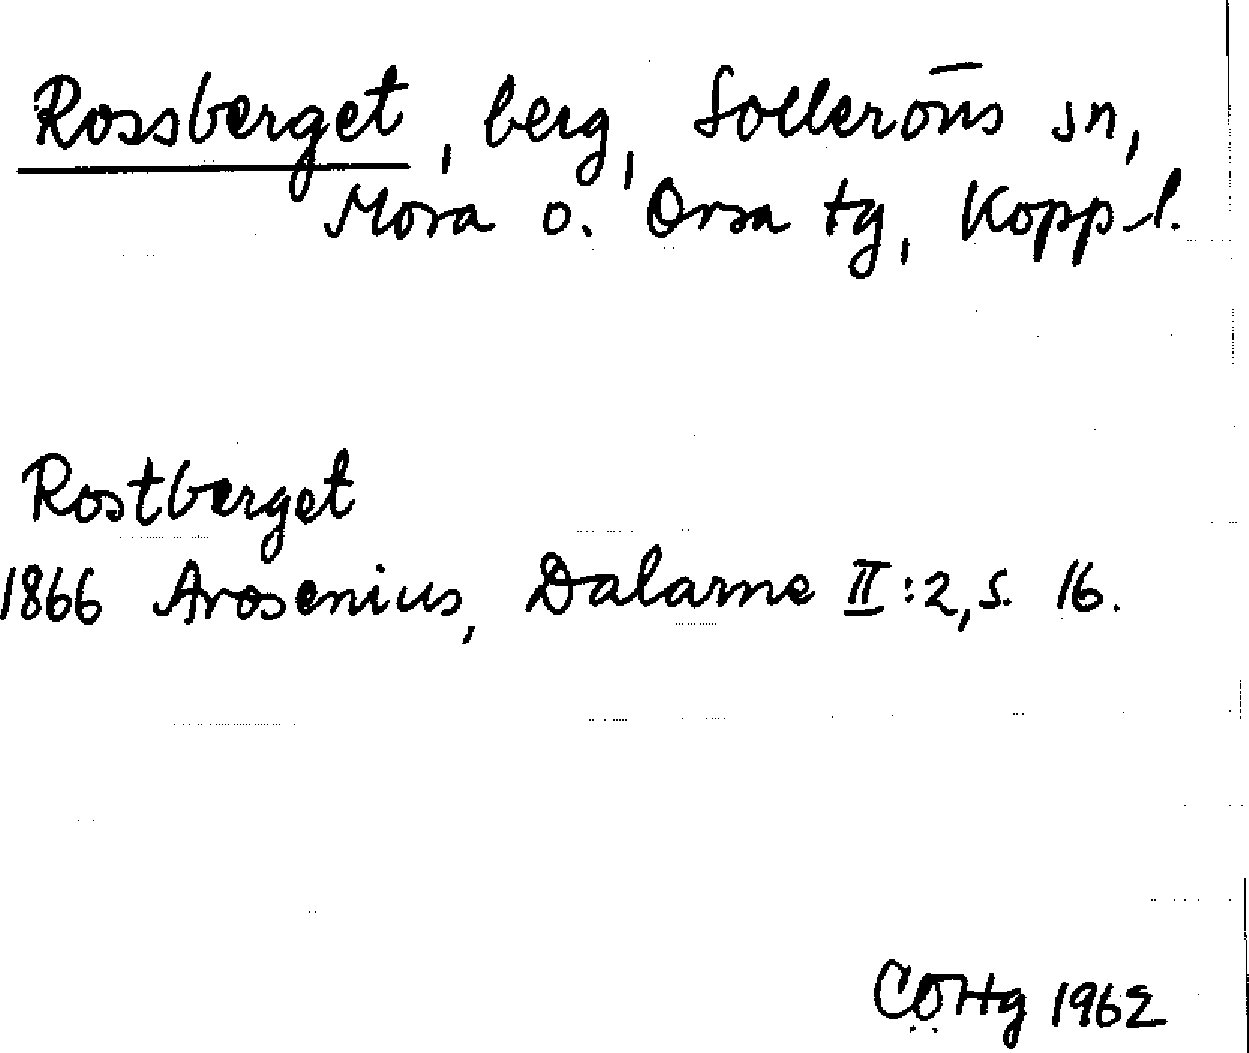 Rossberget, berg, Solleröns sn,
Mora o. Orsa tg, Kopp. l.
Rostberget
1866 Arosenius, Dalarne II:2, s. 16.
CÖHg 1962